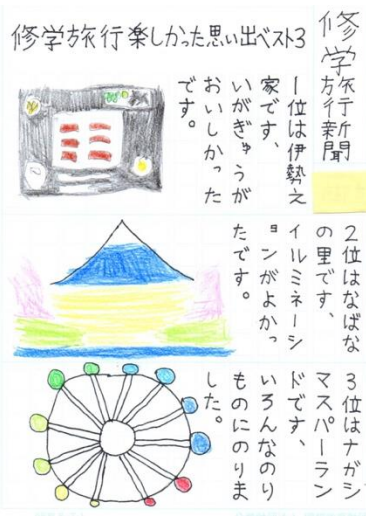 修学旅行新聞
修学旅行楽しかった思い出ベスト3
1位は伊勢え
家です、
いがぎゅうが
おいしかった
です。
2位はなばな
の里です、
イルミネーシ
ョンがよかっ
たです。
3位はナガシ
マスパーラン
ドです、
いろんなのり
ものにのりま
した。